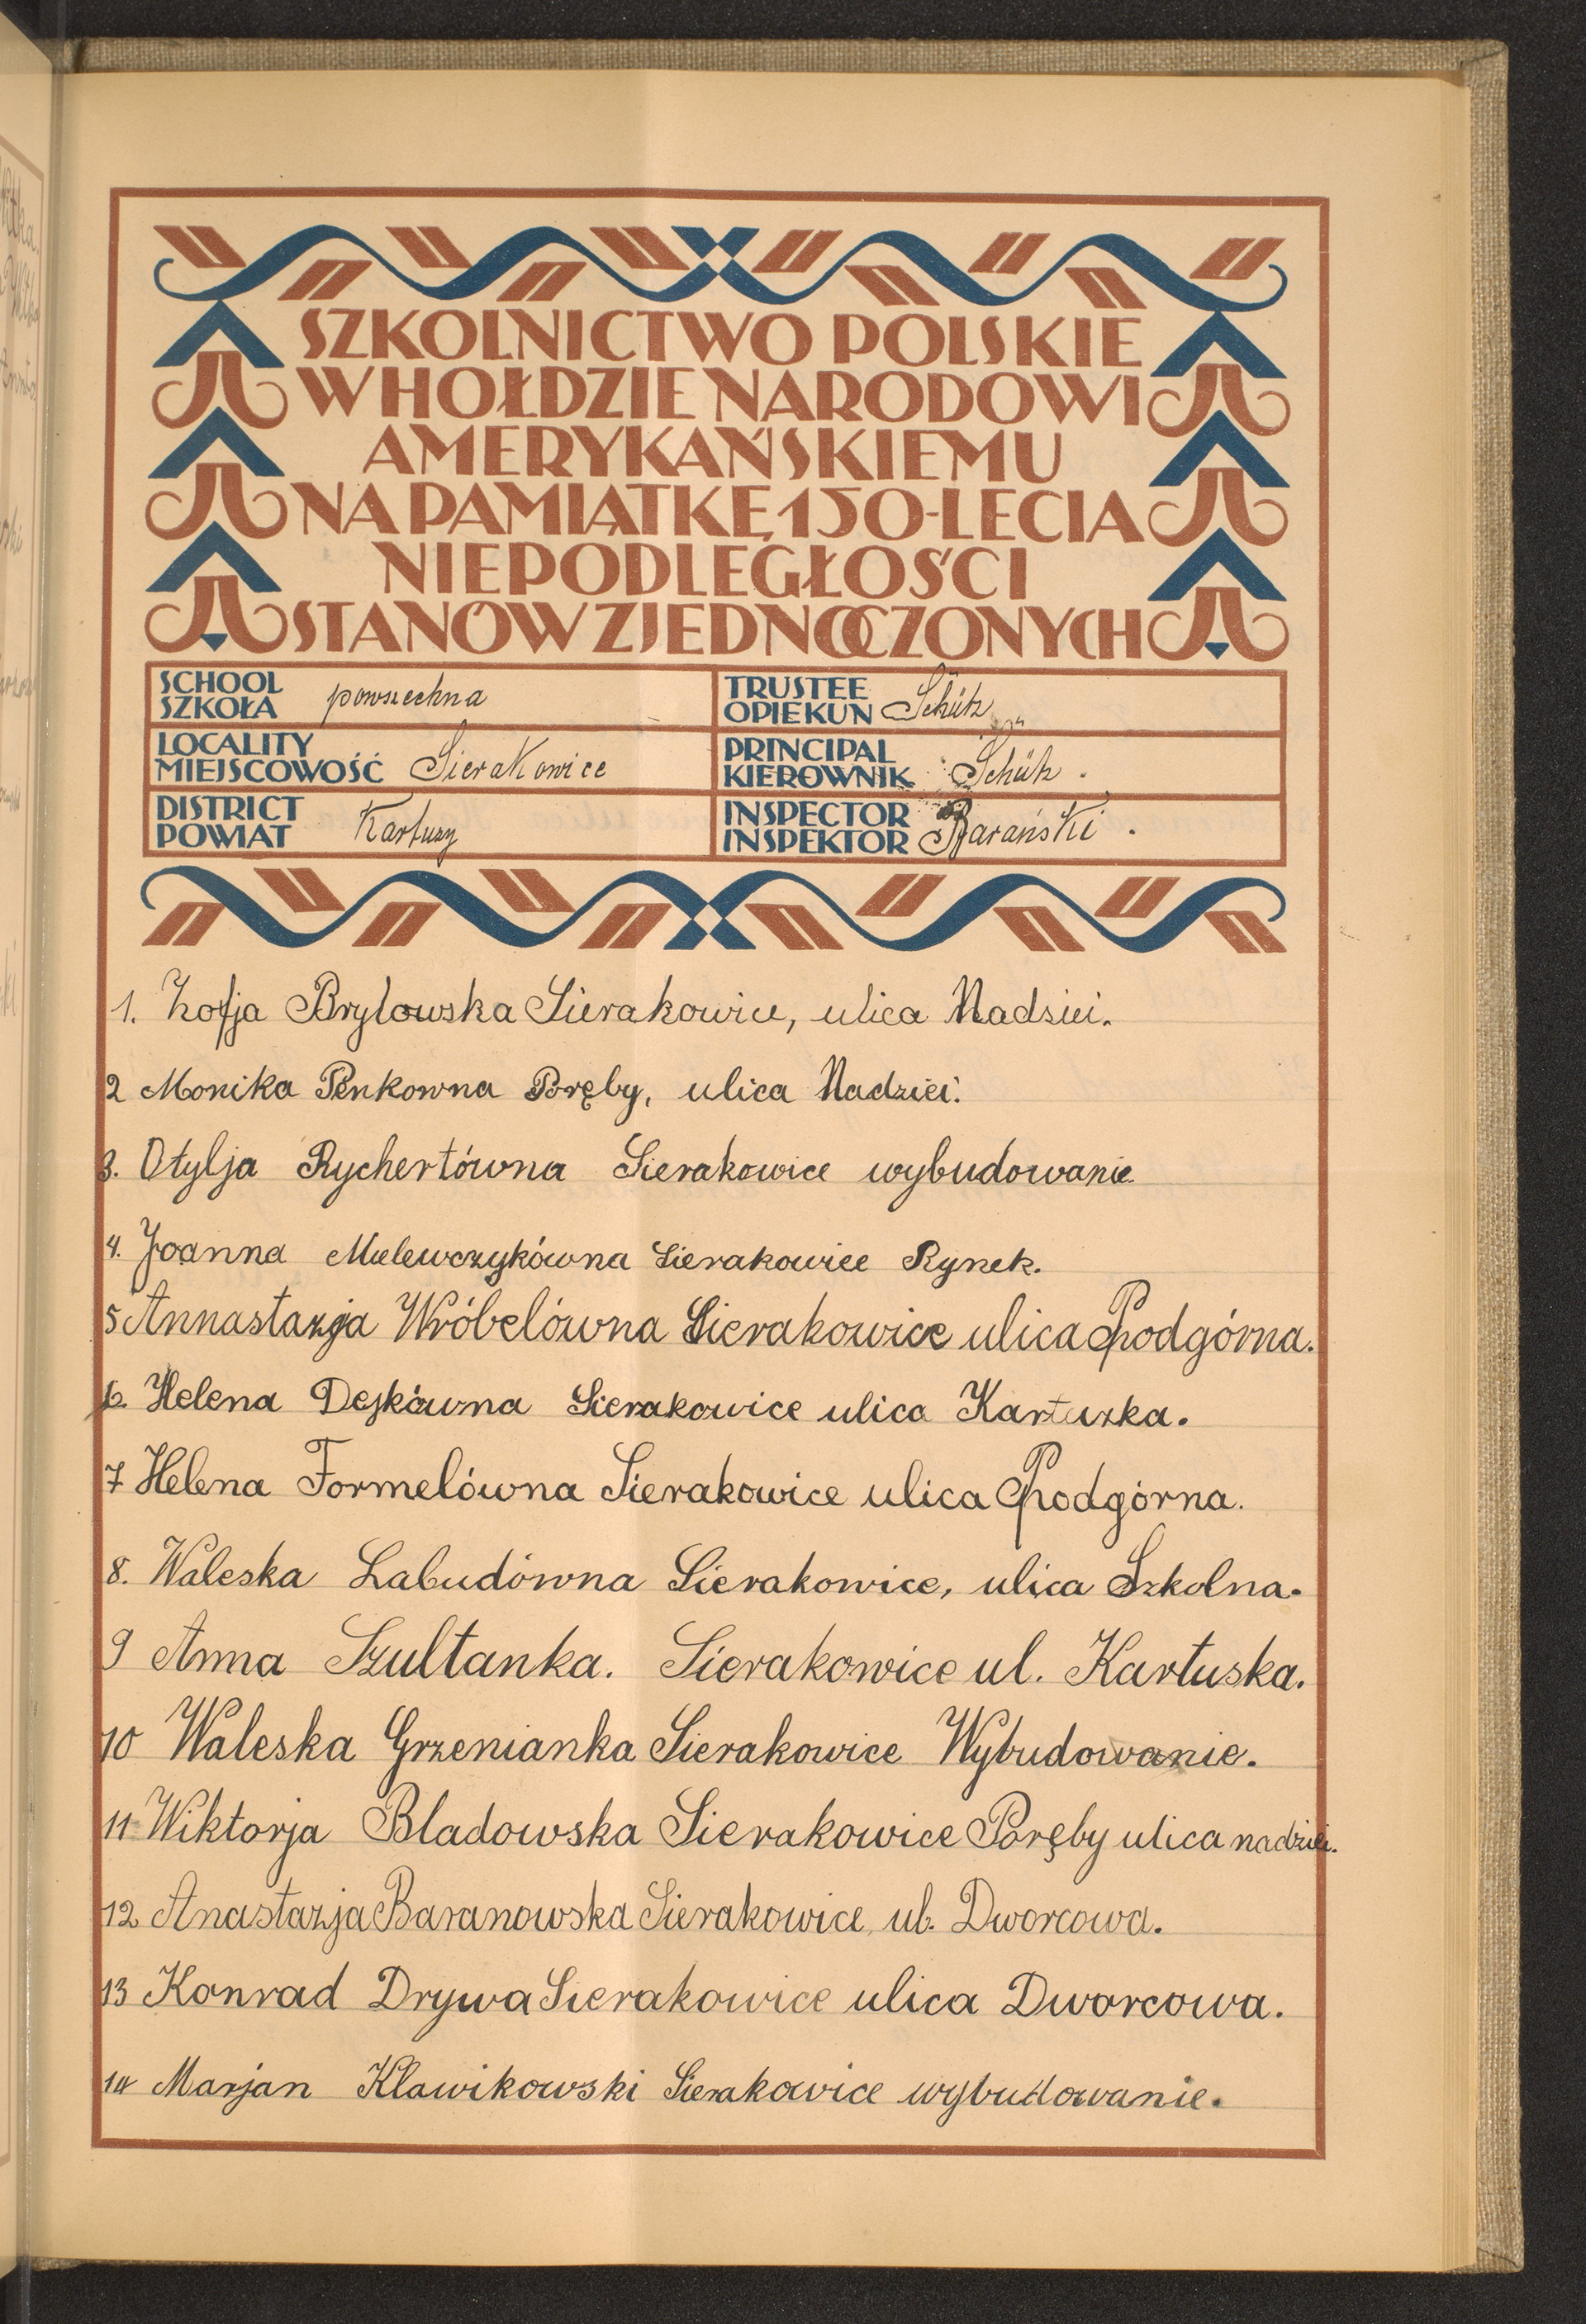 SZKOLNICTWO POLSKIE
W HOŁDZIE NARODOWI
AMERYKAŃSKIEMU
NA PAMIĄTKĘ 150-LECIA
NIEPODLEGŁOŚCI
STANÓW ZJEDNOCZONYCH
SCHOOL
SZKOŁA powszechna
TRUSTEE
OPIEKUN Schütz
LOCALITY
MIEJSCOWOŚĆ Sierakowice
PRINCIPAL
KIEROWNIK Schütz.
DISTRICT
POWIAT Kartuzy
INSPECTOR
INSPEKTOR Barański.
1. Zofja Brylowska Sierakowice, ulica Nadziei.
2 Monika Penkowna Poręby, ulica Nadziei.
3. Otylja Rychertówna Sierakowice wybudowanie.
4. Joanna Malewczykówna Sierakowice Rynek.
5 Annastazja Wróbelówna Sierakowice ulica Podgórna.
6. Helena Dejkówna Sierakowice ulica Kartuzka.
7 Helena Formelówna Sierakowice ulica Podgórna.
8. Waleska Labudówna Sierakowice, ulica Szkolna.
9 Anna Szultanka. Sierakowice ul. Kartuska.
10 Waleska Grzenianka Sierakowice Wybudowanie.
11 Wiktorja Bladowska Sierakowice Poręby ulica nadziei.
12 Anastazja Baranowska Sierakowice, ul. Dworcowa.
13 Konrad Drywa Sierakowice ulica Dworcowa.
14 Marjan Klawikowski Sierakowice wybudowanie.